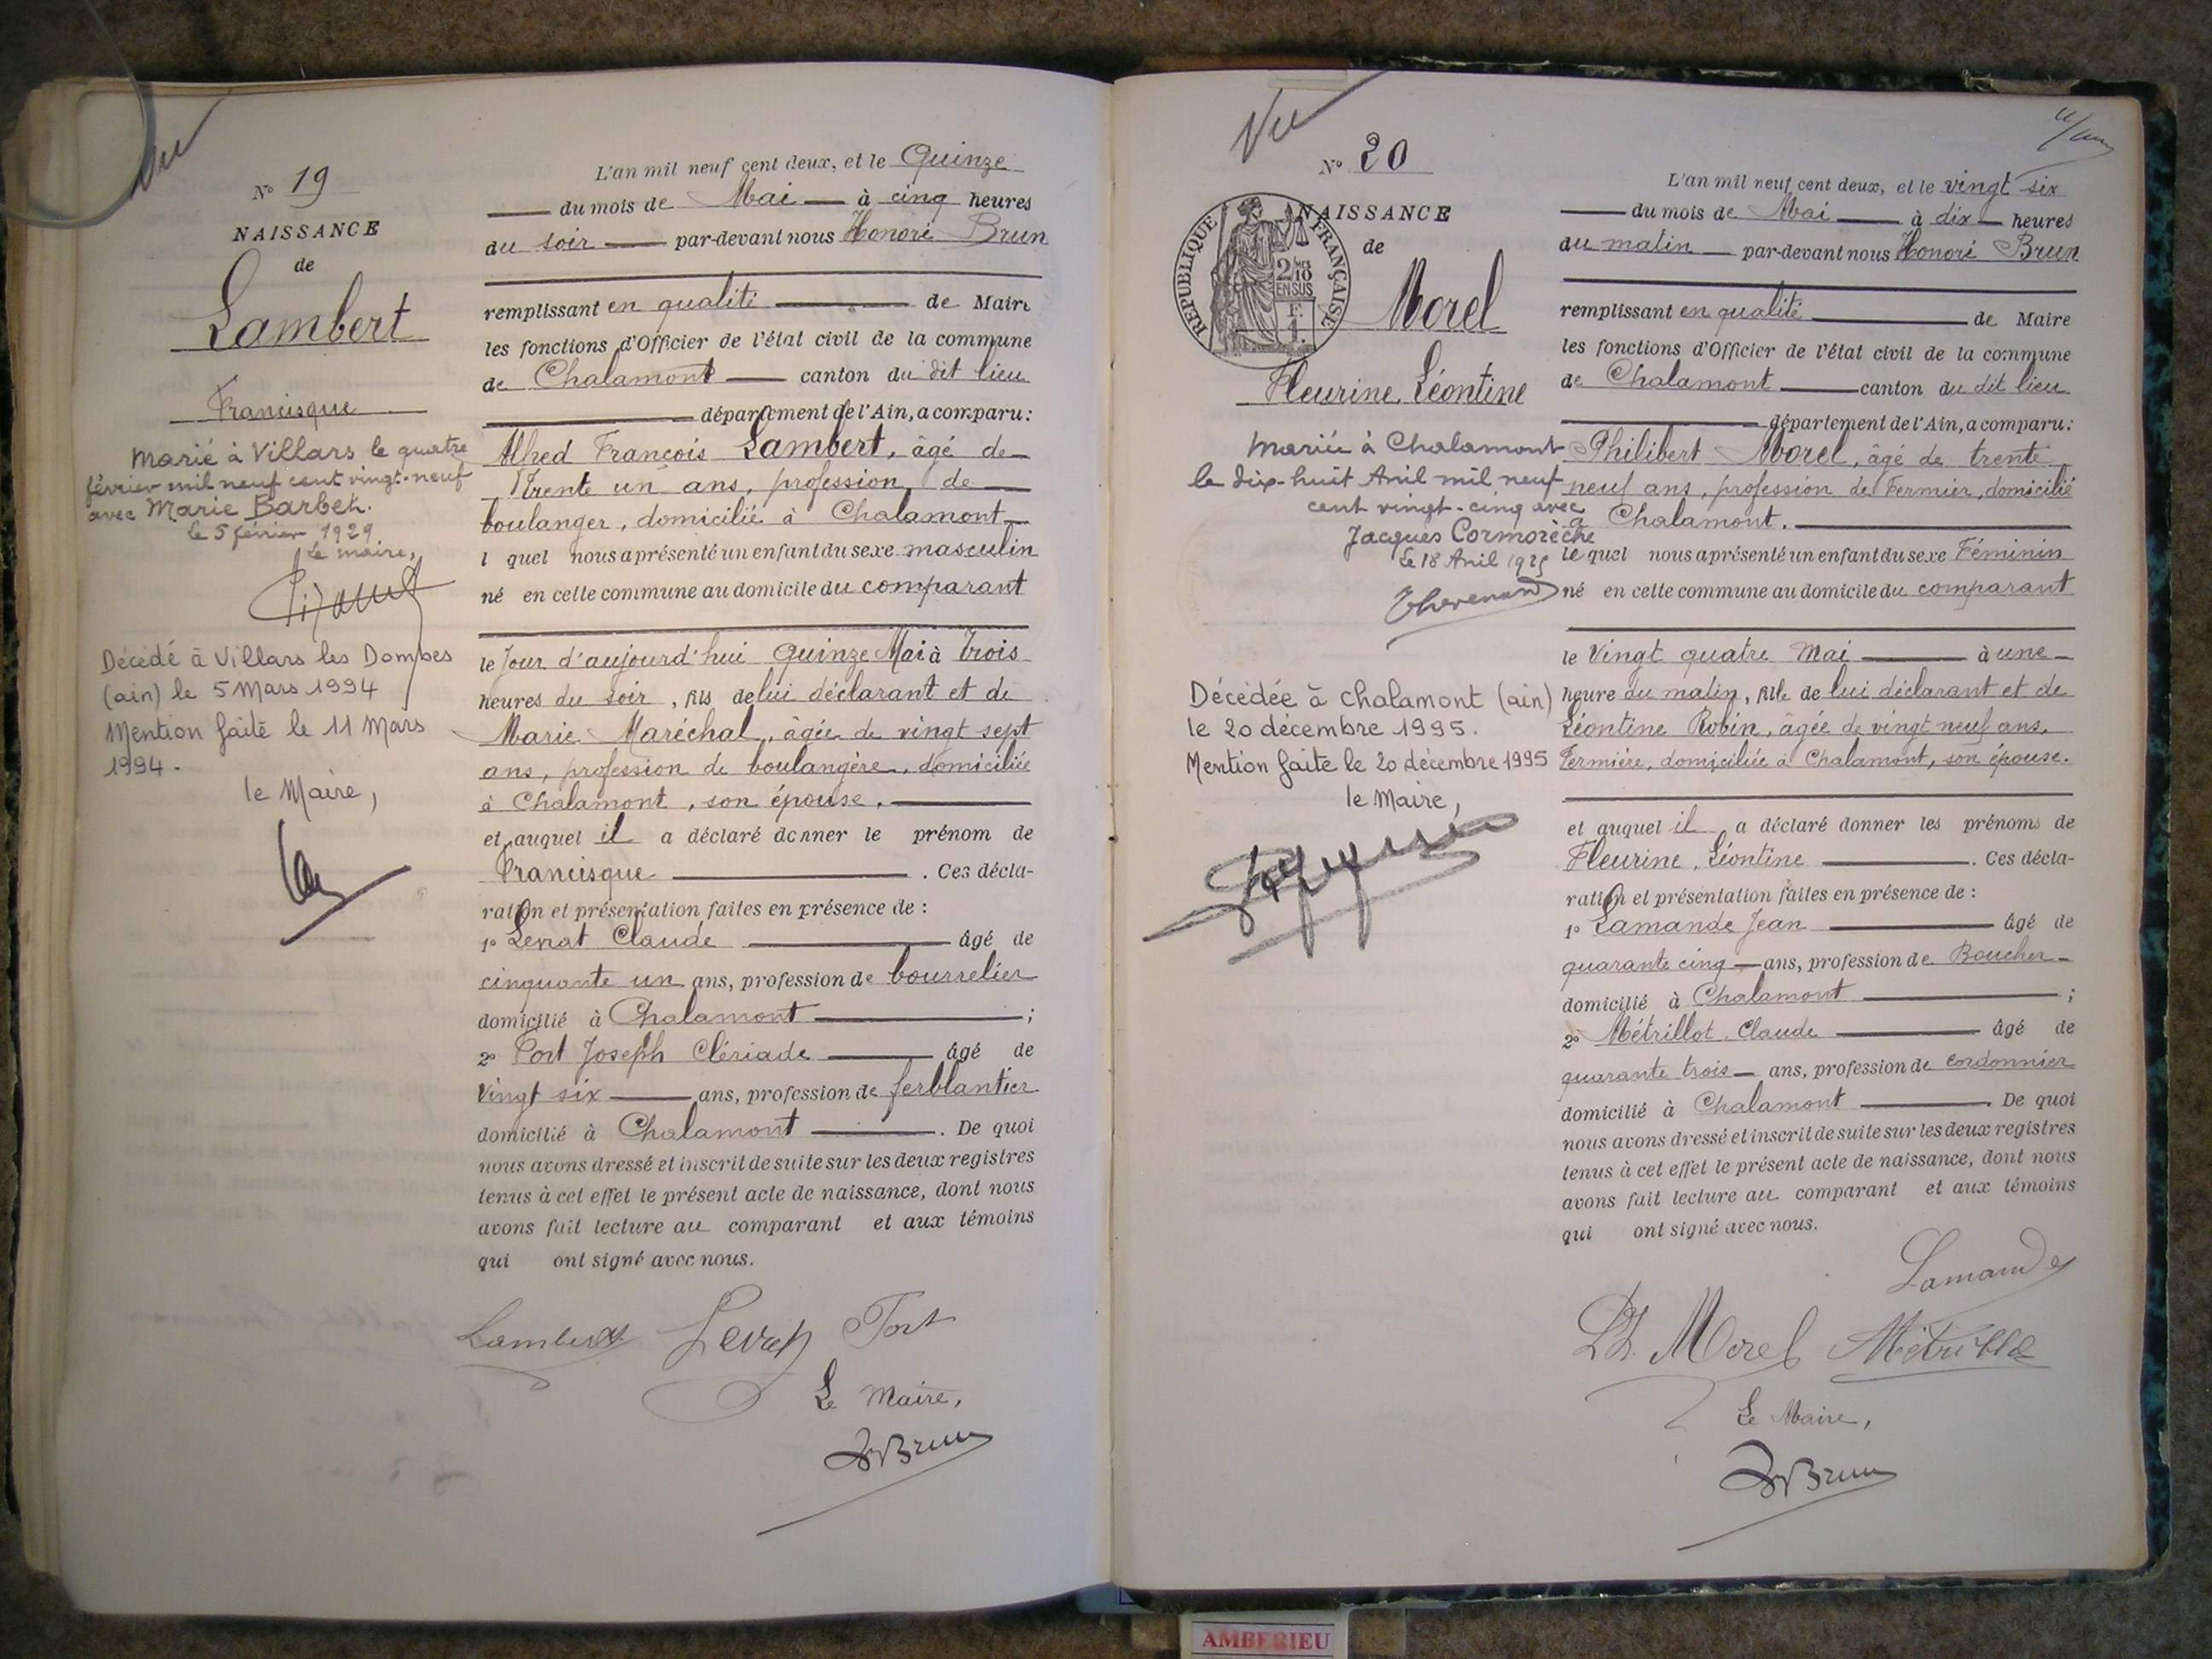 Vu
N° 19
NAISSANCE
de
Lambert
Francisque
Marié à Villars le quatre
février mil neuf cent vingt-neuf
avec Marie Barbet.
le 5 février 1929
le maire,
Décédé à Villars les Dombes
(ain) le 5 Mars 1994
Mention faite le 11 Mars
1994.
le Maire,
L'an mil neuf cent deux, et le Quinze
du mois de Mai à cinq heures
du soir par-devant nous Honoré Brun
remplissant en qualité de Maire
les fonctions d'Officier de l'état civil de la commune
de Chalamont canton du dit lieu
département de l'Ain, a comparu:
Alfred François Lambert, âgé de
Trente un ans, profession de
boulanger, domicilié à Chalamont
l quel nous a présenté un enfant du sexe masculin
né en cette commune au domicile du comparant
le Jour d'aujourd'hui Quinze Mai à trois
heures du soir, fils de lui déclarant et de
Marie Maréchal, âgée de vingt sept
ans, profession de boulangère, domiciliée
à Chalamont, son épouse,
et auquel il a déclaré donner le prénom de
Francisque . Ces décla-
ration et présentation faites en présence de :
1° Levrat Claude âgé de
cinquante un ans, profession de bourrelier
domicilié à Chalamont ;
2° Tort Joseph Clériade âgé de
vingt six ans, profession de ferblantier
domicilié à Chalamont . De quoi
nous avons dressé et inscrit de suite sur les deux registres
tenus à cet effet le présent acte de naissance, dont nous
avons fait lecture au comparant et aux témoins
qui ont signé avec nous.
Lambert Levrat Tort
Le Maire,
Brun
Vu
N° 20
REPUBLIQUE FRANÇAISE
2/10 EN SUS
NAISSANCE
de
Morel
Fleurine, Léontine
Mariée à Chalamont
le dix-huit Avril mil neuf
cent vingt-cinq avec
Jacques Cormorèche
Le 18 Avril 1925
Thevenard
Décédée à Chalamont (ain)
le 20 décembre 1995.
Mention faite le 20 décembre 1995
le Maire,
L'an mil neuf cent deux, et le vingt six
du mois de Mai à dix heures
du matin par-devant nous Honoré Brun
remplissant en qualité de Maire
les fonctions d'Officier de l'état civil de la commune
de Chalamont canton du dit lieu
département de l'Ain, a comparu:
Philibert Morel, âgé de trente
neuf ans, profession de Fermier, domicilié
à Chalamont.
lequel nous a présenté un enfant du sexe Féminin
né en cette commune au domicile du comparant
le Vingt quatre Mai à une
heure du matin, fille de lui déclarant et de
Léontine Robin, âgée de vingt neuf ans,
Fermière, domiciliée à Chalamont, son épouse.
et auquel il a déclaré donner les prénoms de
Fleurine, Léontine . Ces décla-
ration et présentation faites en présence de :
1° Lamande Jean âgé de
quarante cinq ans, profession de Boucher
domicilié à Chalamont ;
2° Métrillot Claude âgé de
quarante trois ans, profession de cordonnier
domicilié à Chalamont . De quoi
nous avons dressé et inscrit de suite sur les deux registres
tenus à cet effet le présent acte de naissance, dont nous
avons fait lecture au comparant et aux témoins
qui ont signé avec nous.
Lamande
Ph. Morel Métrillot
Le Maire,
Brun
AMBERIEU